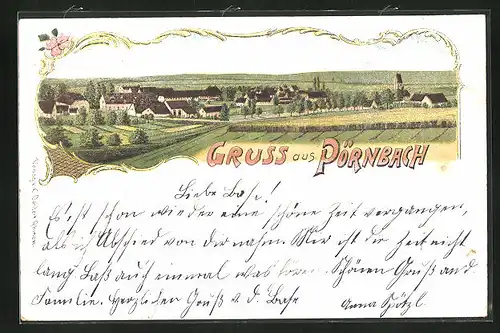 GRUSS aus PÖRNBACH
Liebe Base!
Es ist schon wieder eine schöne Zeit vergangen,
als ich Abschied von dir nahm. Mir ist die Zeit nicht
lang. Laß auch einmal was hören. Schönen Gruß and
Familie. Herzlichen Gruß v. d. Base
Anna